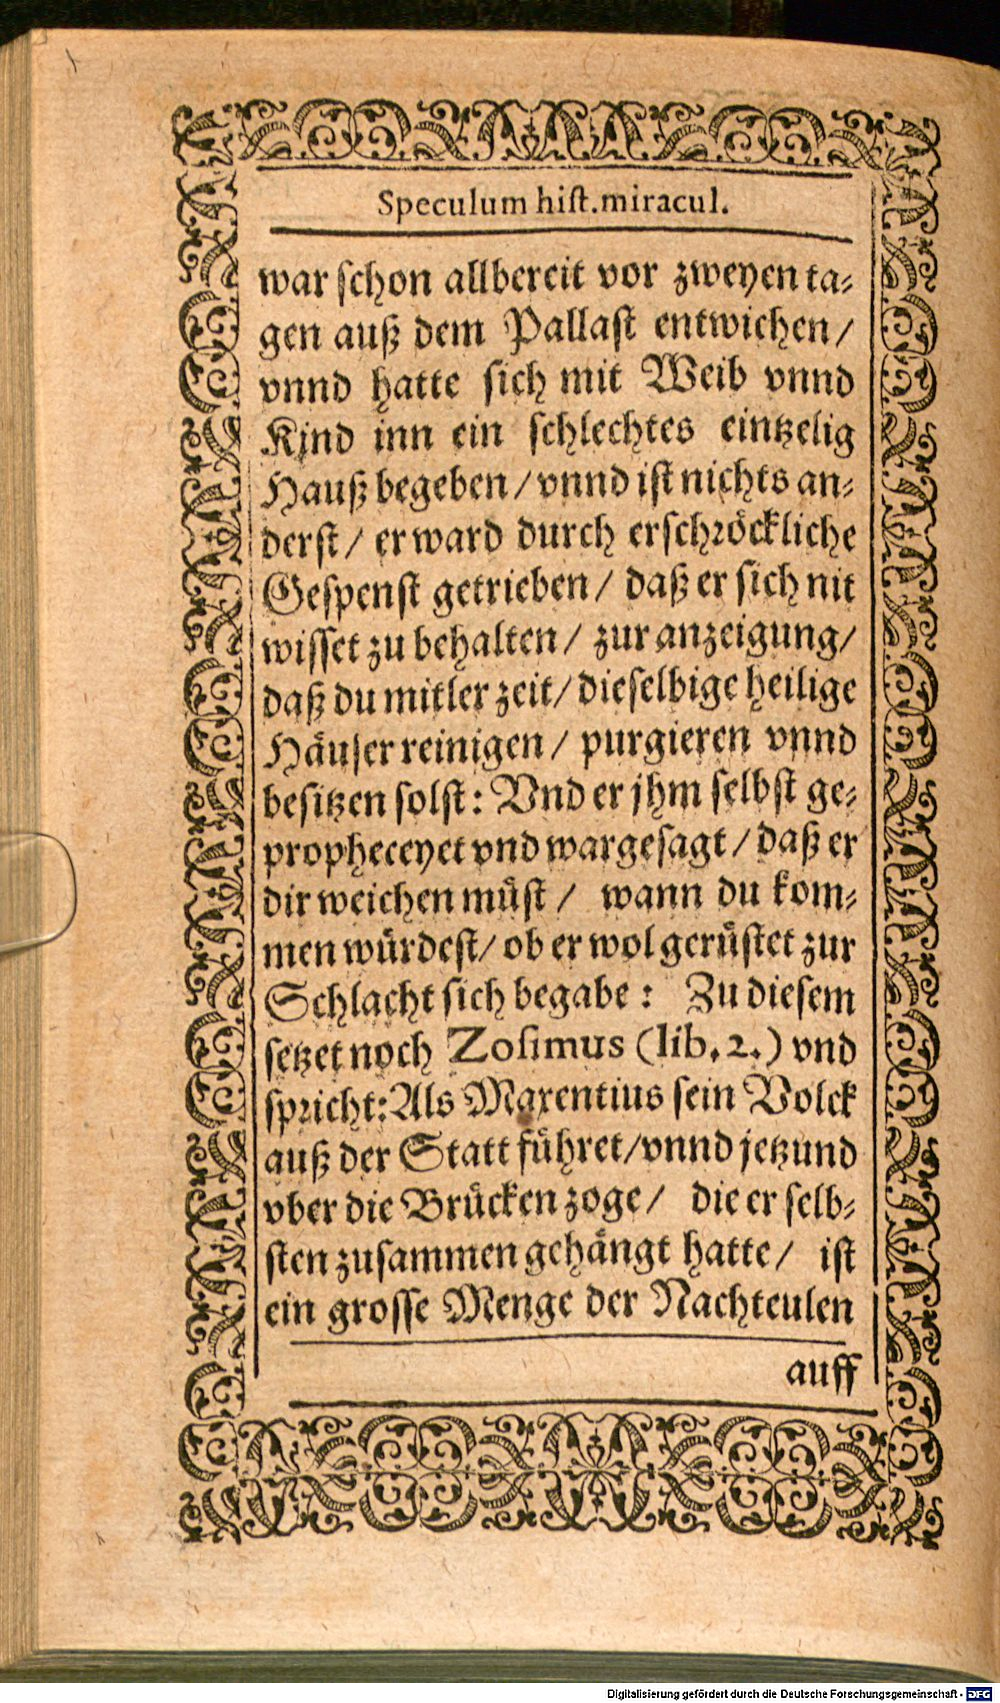 Speculum hist.miracul.
war schon allbereit vor zweyen ta-
gen auß dem Pallast entwichen/
vnnd hatte sich mit Weib vnnd
Kind inn ein schlechtes eintzelig
Hauß begeben/vnnd ist nichts an-
derst/ er ward durch erschröckliche
Gespenst getrieben/ daß er sich nit
wisset zu behalten/ zur anzeigung/
daß du mitler zeit/dieselbige heilige
Häuser reinigen/ purgieren vnnd
besitzen solst: Vnd er jhm selbst ge-
propheceyet vnd wargesagt/daß er
dir weichen müst/ wann du kom-
men würdest/ob er wol gerüstet zur
Schlacht sich begabe: Zu diesem
setzet noch Zosimus (lib.2.) vnd
spricht:Als Maxentius sein Volck
auß der Statt führet/vnnd jetzund
vber die Brücken zoge/ die er selb-
sten zusammen gehängt hatte/ ist
ein grosse Menge der Nachteulen
auff
Digitalisierung gefördert durch die Deutsche Forschungsgemeinschaft - DFG